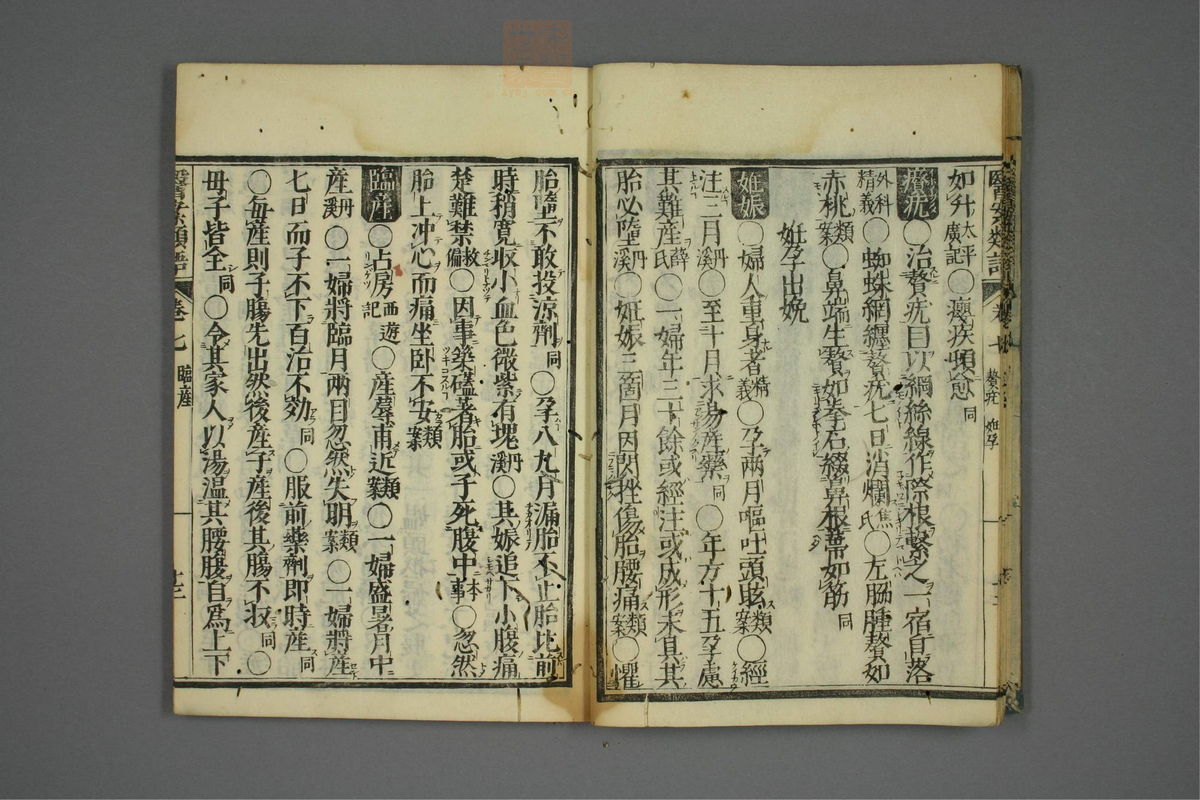 如升太平廣記○癭疾頓愈同
療疣○治瘤疣目以綱絲線作際根繫之一宿自落
外科精義○蜘蛛網纏瘤疣七日消爛焦氏○左脇腫瘤如
赤桃類案○鼻端生瘤如拳石綴鼻根蔕如筋同
妊孕出娩
妊娠○婦人重身者精義○孕兩月嘔吐頭眩類案○經
注三月丹溪○至十月求易産藥同○年方十五孕慮
其難産薛氏○一婦年三十餘或經注或成形未具其
胎必墮丹溪○妊娠三箇月因閃挫傷胎腰痛類案○懼
胎墮不敢投涼劑同○孕八九月漏胎不止胎比前
時稍寛收小血色微紫有塊丹溪○其娠追下小腹痛
楚難禁救偏○因事築磕著胎或子死腹中本事○忽然
胎上冲心而痛坐卧不安類案
臨産○占房西遊記○産蓐甫近類案○一婦盛暑月中
産丹溪○一婦將臨月兩日忽然失明類案○一婦將産
七日而子不下百治不効同○服前藥劑即時産同
○每産則子腸先出然後産子産後其腸不收同○
母子皆全同○令其家人以湯温其腰腹自爲上下
醫案類語 卷七 臨産